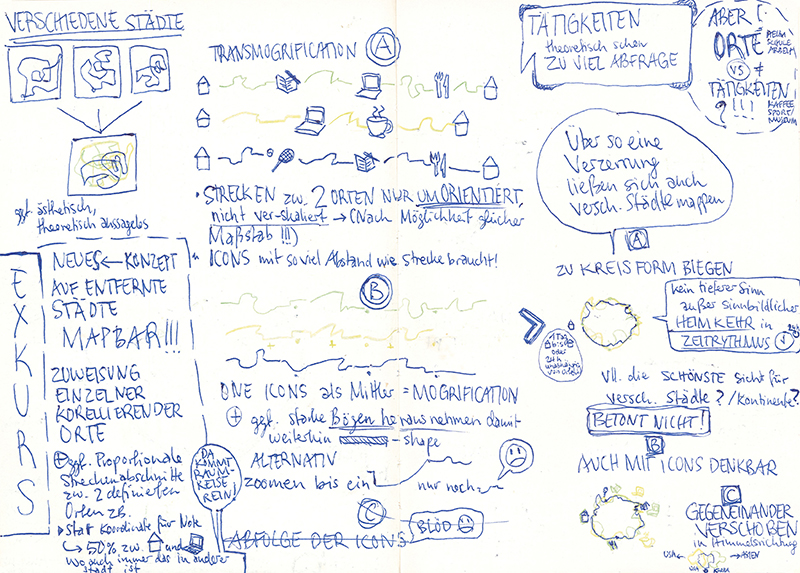 VERSCHIEDENE STÄDTE
ggf. ästhetisch,
theoretisch aussagelos
EXKURS
NEUES KONZEPT
AUF ENTFERNTE
STÄDTE
MAPBAR!!!
ZUWEISUNG
EINZELNER
KORELLIERENDER
ORTE
ggf. Proportionale
Streckenabschnitte
zw. 2 definierten
Orten zB.
Statt Koordinate für Note
50% zw. und
wo auch immer das in anderer
Stadt ist
TRANSMOGRIFICATION A
STRECKEN zw. 2 ORTEN NUR UMORIENTIERT,
nicht ver-skaliert → (Nach Möglichkeit gleicher
Maßstab!!!)
ICONS mit so viel Abstand wie Strecke braucht!
B
ONE ICONS als Mittler = MOGRIFICATION
+ ggf. starke Bögen herausnehmen damit
weiterhin - shape
ALTERNATIV
zoomen bis ein
nur noch
DA
KOMMT
RAUM-
REISE
REIN!
C
BLÖD
ABFOLGE DER ICONS
TÄTIGKEITEN
theoretisch schon
ZU VIEL ABFRAGE
ABER!
ORTE
HEIM
SCHULE
ARBEIT
VS ≠
TÄTIGKEITEN
?!!!
KAFFEE
SPORT/
MUSEUM
Über so eine
Verzerrung
ließen sich auch
versch. Städte mappen
A
ZU KREISFORM BIEGEN
kein tieferer Sinn
außer sinnbildlicher
HEIMKEHR in
ZEITRYTHMUS
1 Tag
bis
oder
24h
Vll. die SCHÖNSTE Sicht für
versch. Städte? / Kontinente?
BETONT NICHT!
B
AUCH MIT ICONS DENKBAR
C
GEGENEINANDER
VERSCHOBEN
in Himmelsrichtung
USA ← → ASIEN